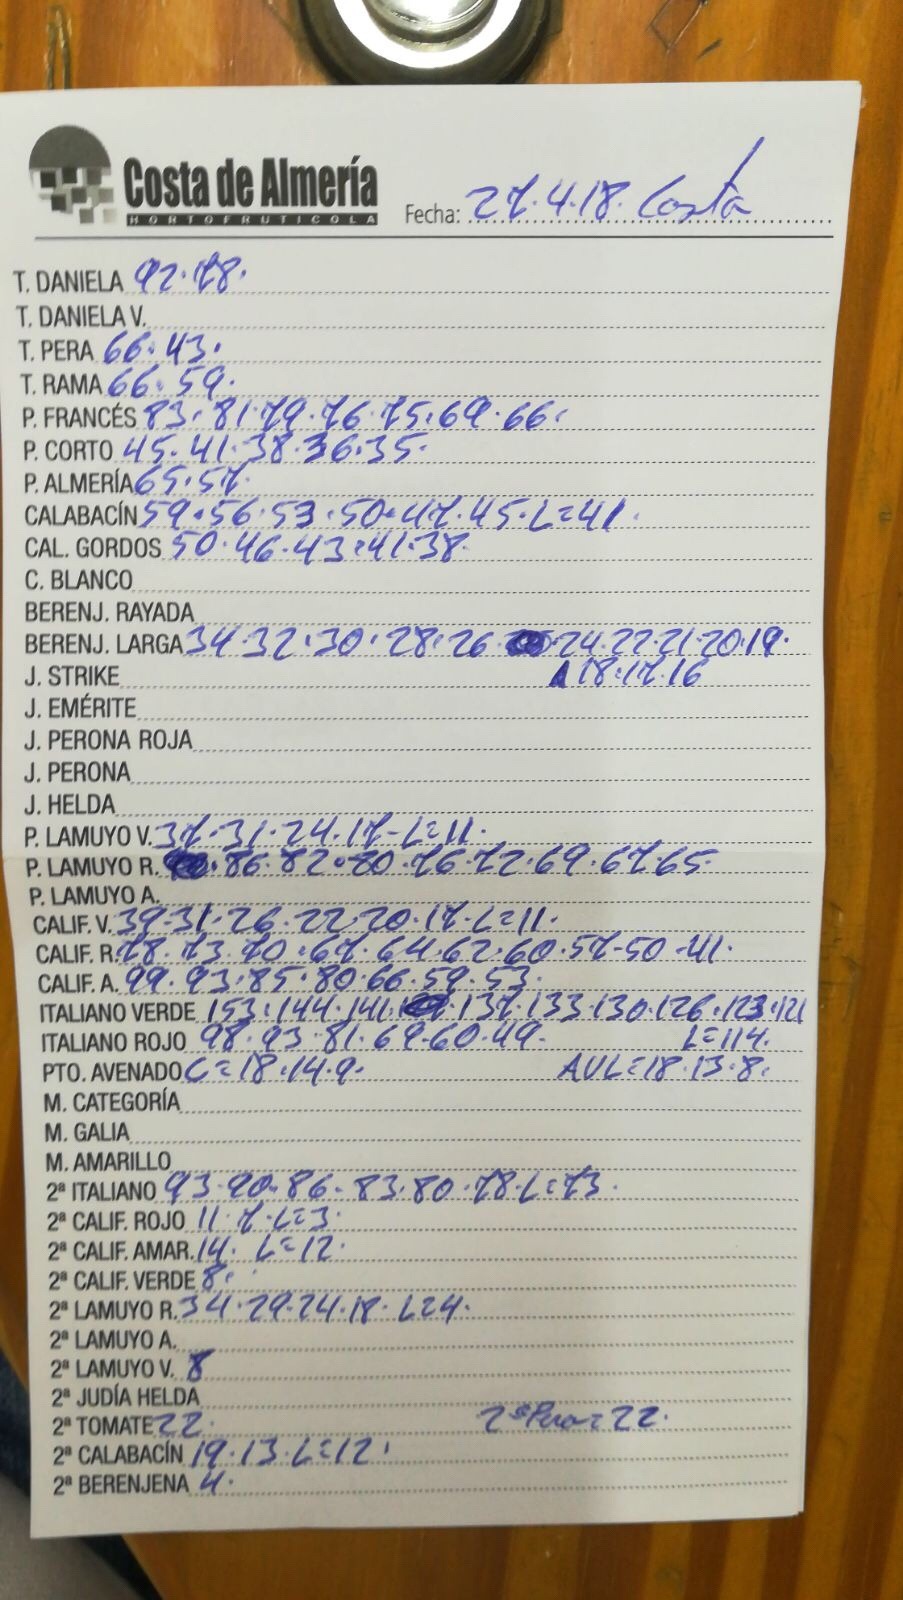 Costa de Almería
HORTOFRUTICOLA
Fecha: 27.4.18. Costa
T. DANIELA 92.78.
T. DANIELA V.
T. PERA 66.43.
T. RAMA 66.59.
P. FRANCÉS 83.81.79.76.75.69.66.
P. CORTO 45.41.38.36.35.
P. ALMERÍA 65.57.
CALABACÍN 59.56.53.50.47.45.L=41.
CAL. GORDOS 50.46.43.41.38.
C. BLANCO
BERENJ. RAYADA
BERENJ. LARGA 34.32.30.28.26. .24.22.21.20.19.
J. STRIKE 18.17.16
J. EMÉRITE
J. PERONA ROJA
J. PERONA
J. HELDA
P. LAMUYO V. 37.31.24.17-L=11.
P. LAMUYO R. .86.82.80.76.72.69.67.65
P. LAMUYO A.
CALIF. V. 39.31.26.22.20.17-L=11.
CALIF. R. 78.73.70.67.64.62.60.57-50-41.
CALIF. A. 99.93.85.80.66.59.53.
ITALIANO VERDE 153.144.141. .137.133.130.126.123.121
ITALIANO ROJO 98.93.81.69.60.49. L=114.
PTO. AVENADO C=18.14.9. AVL=18.13.8.
M. CATEGORÍA
M. GALIA
M. AMARILLO
2ª ITALIANO 93.90.86-83.80.78.L=73.
2ª CALIF. ROJO 11.7-L=3.
2ª CALIF. AMAR. 14. L=12.
2ª CALIF. VERDE 8.
2ª LAMUYO R. 34.29.24.18. L=4.
2ª LAMUYO A.
2ª LAMUYO V. 8
2ª JUDÍA HELDA
2ª TOMATE 22. 2ª Pera=22.
2ª CALABACÍN 19.13.L=12.
2ª BERENJENA 4.